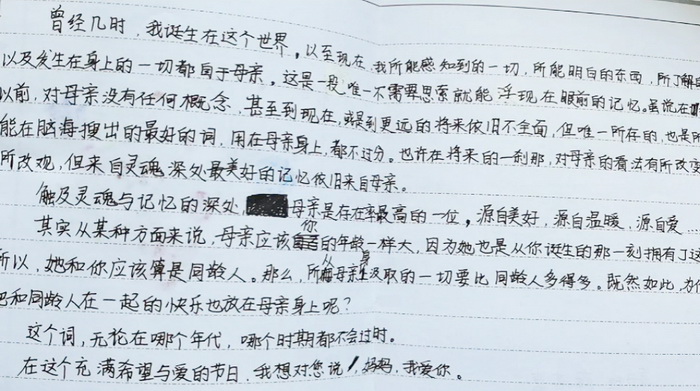 曾经几时，我诞生在这个世界，以至现在，我所能感知到的一切，所能明白的东西，所了解
以及发生在身上的一切都自于母亲。这是一段唯一不需要思索就能浮现在眼前的记忆。虽说在
以前，对母亲没有任何概念，甚至到现在，或到更远的将来依旧不全面，但唯一所存的，也是所
能在脑海搜出的最好的词，用在母亲身上，都不过分。也许在将来的一刹那，对母亲的看法有所改变
所改观，但来自灵魂深处最美好的记忆依旧来自母亲。
触及灵魂与记忆的深处，母亲是存在率最高的一位，源自美好，源自温暖，源自爱...
其实从某种方面来说，母亲应该你的年龄一样大，因为她也是从你诞生的那一刻拥有了这
所以，她和你应该算是同龄人。那么，所从母亲身汲取的一切要比同龄人多得多。既然如此，为
把和同龄人在一起的快乐也放在母亲身上呢？
这个词，无论在哪个年代，哪个时期都不会过时。
在这个充满希望与爱的节日，我想对您说，妈妈，我爱你。